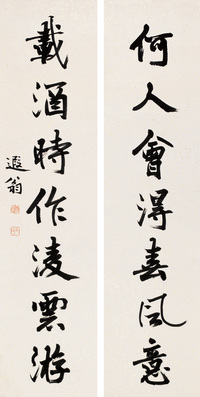 何人會得春風意
載酒時作淩雲游
遐翁